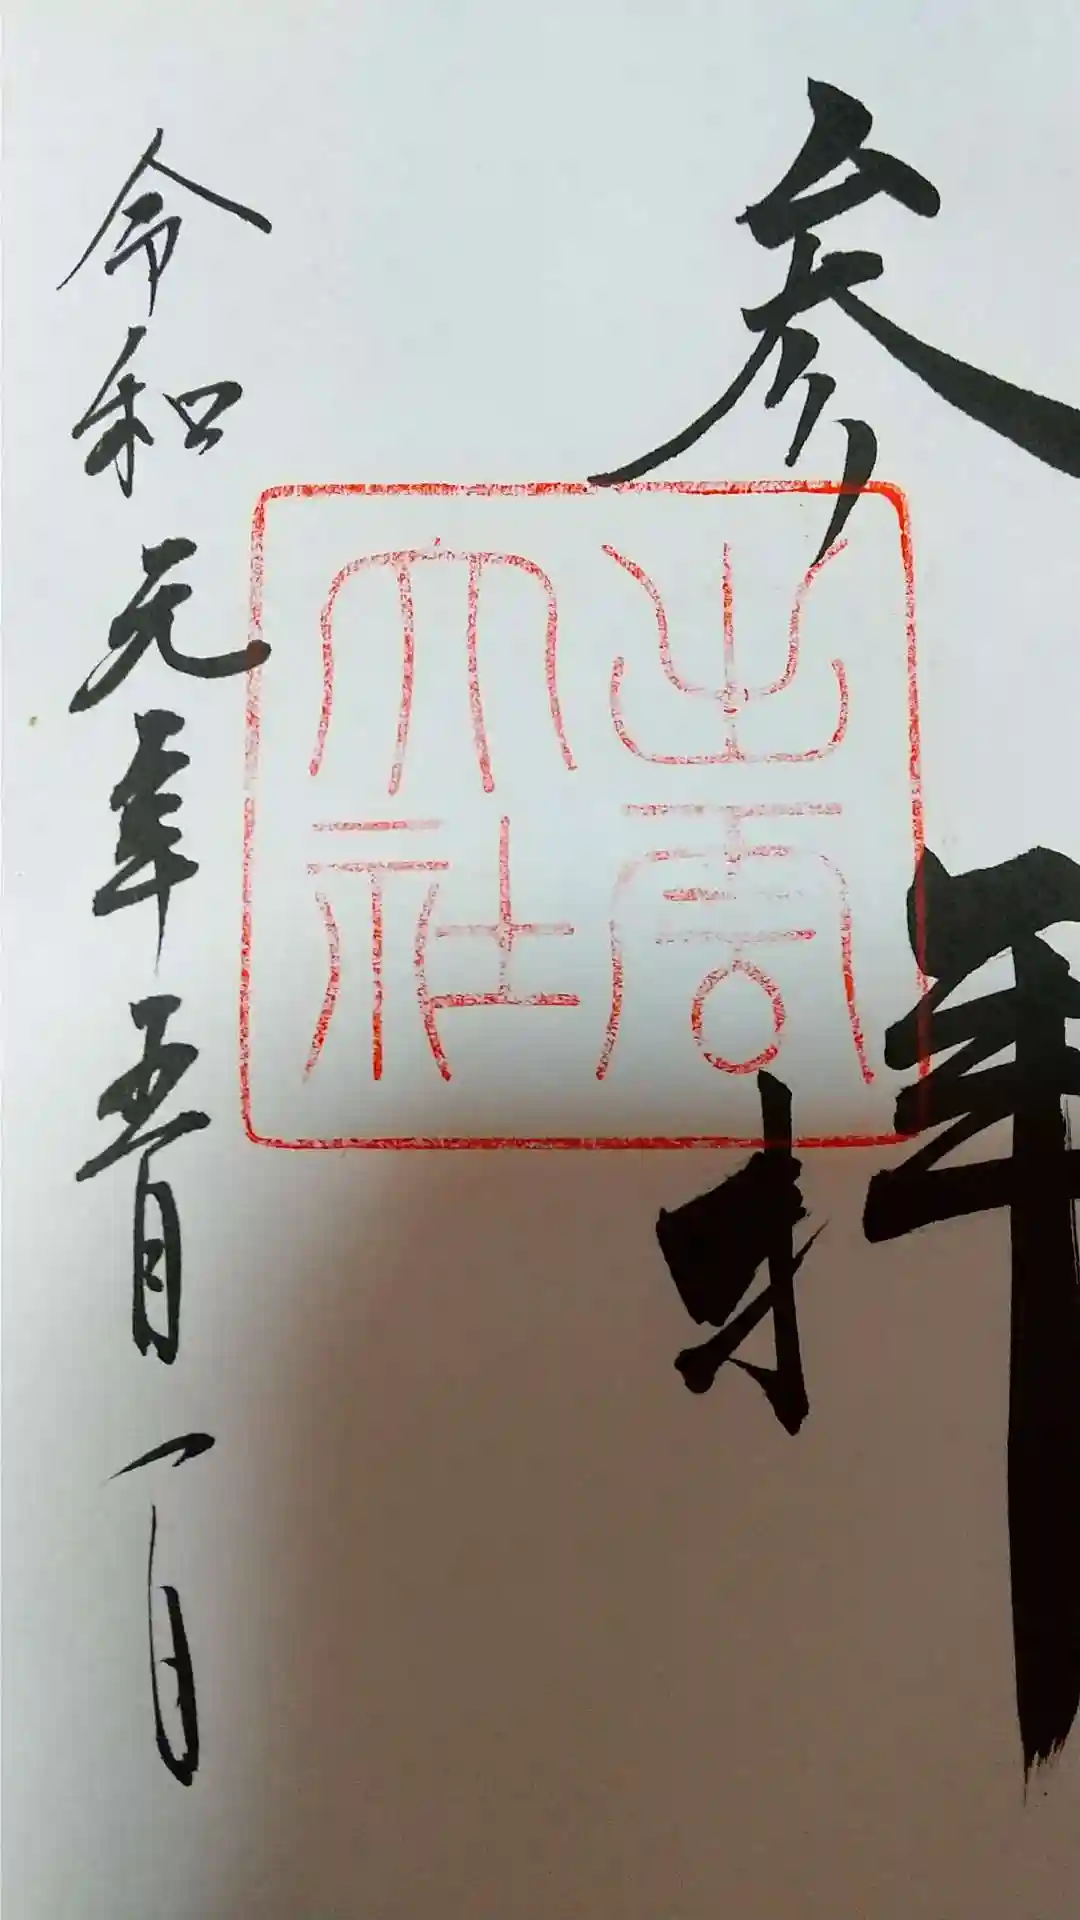 参拝
出雲大社
令和元年五月一日